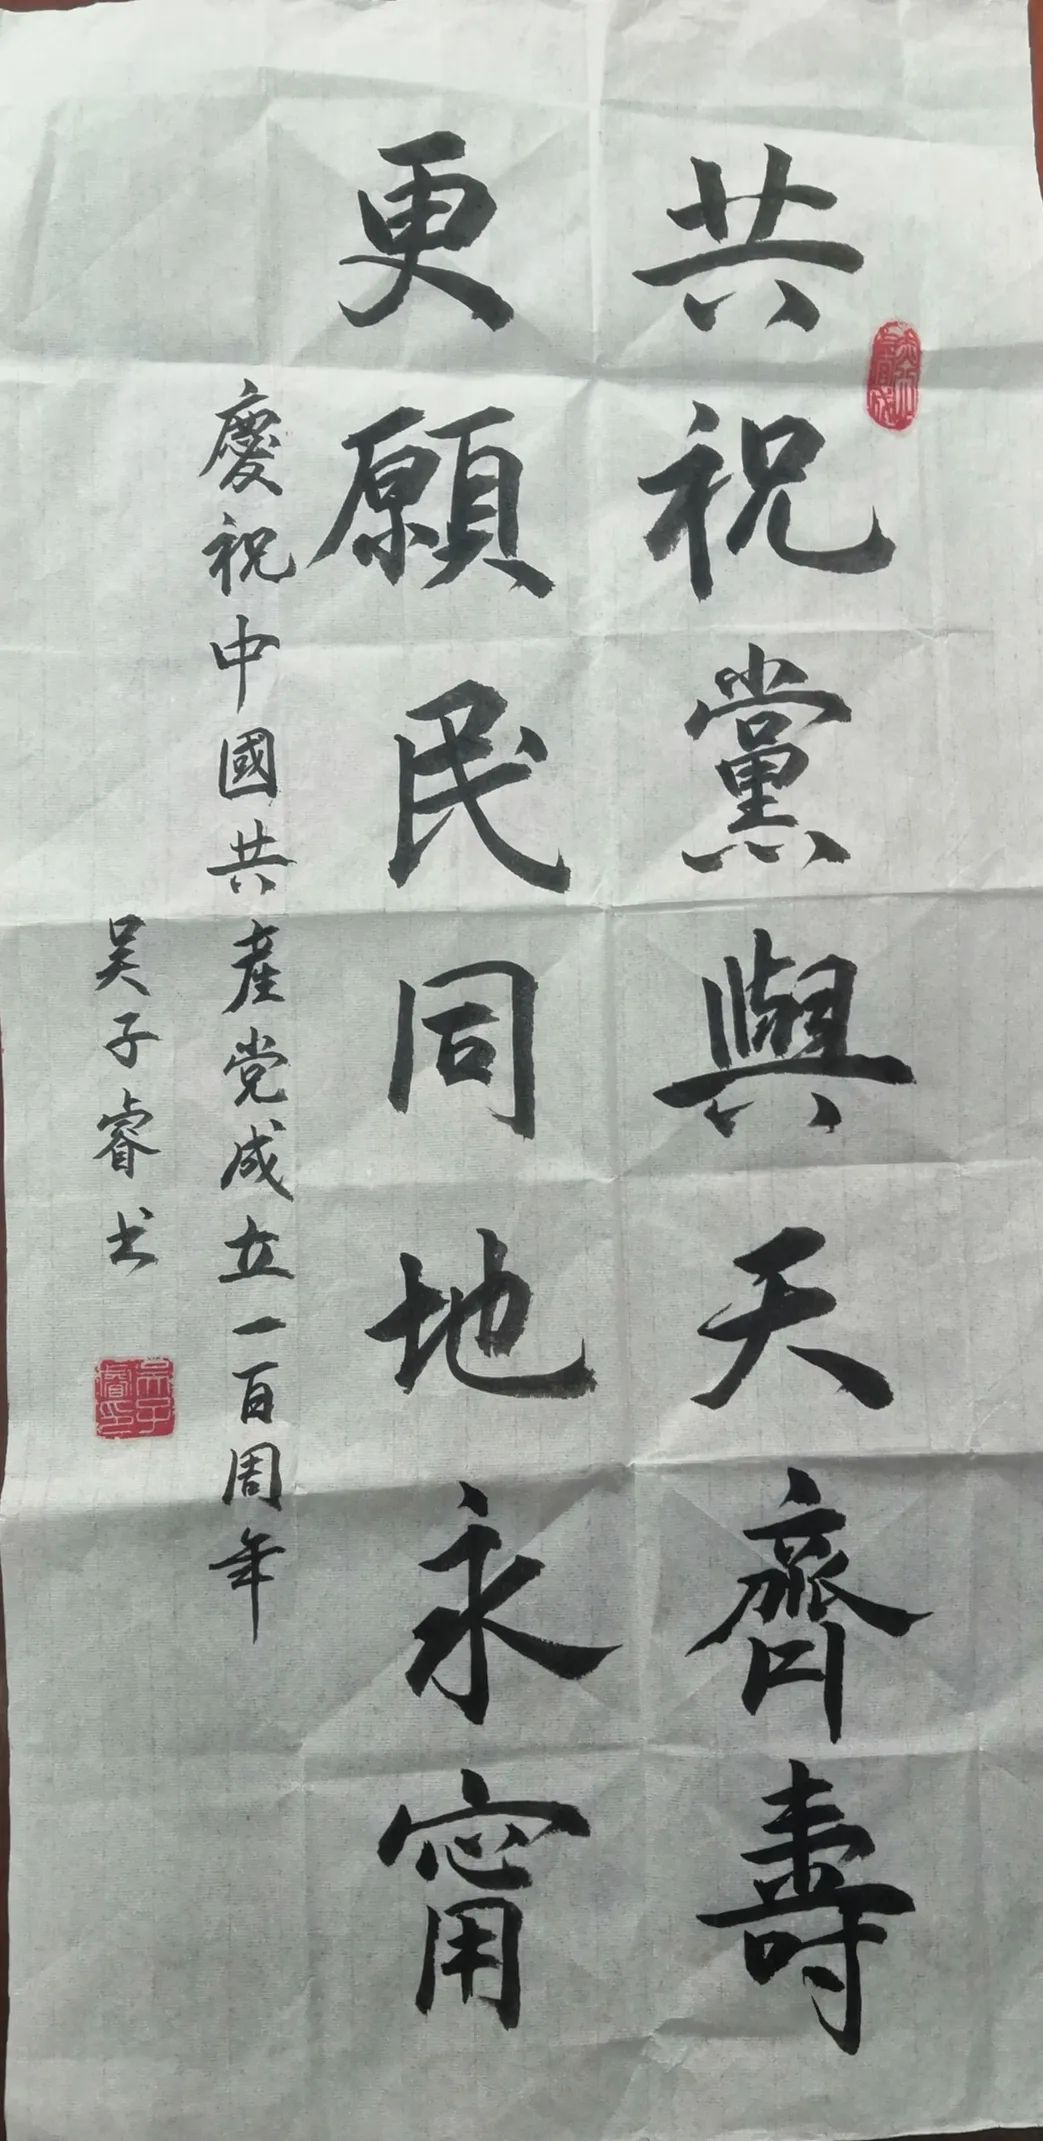 共祝黨與天齊壽
更願民同地永甯
慶祝中國共產党成立一百周年
吴子睿书
吴子睿印